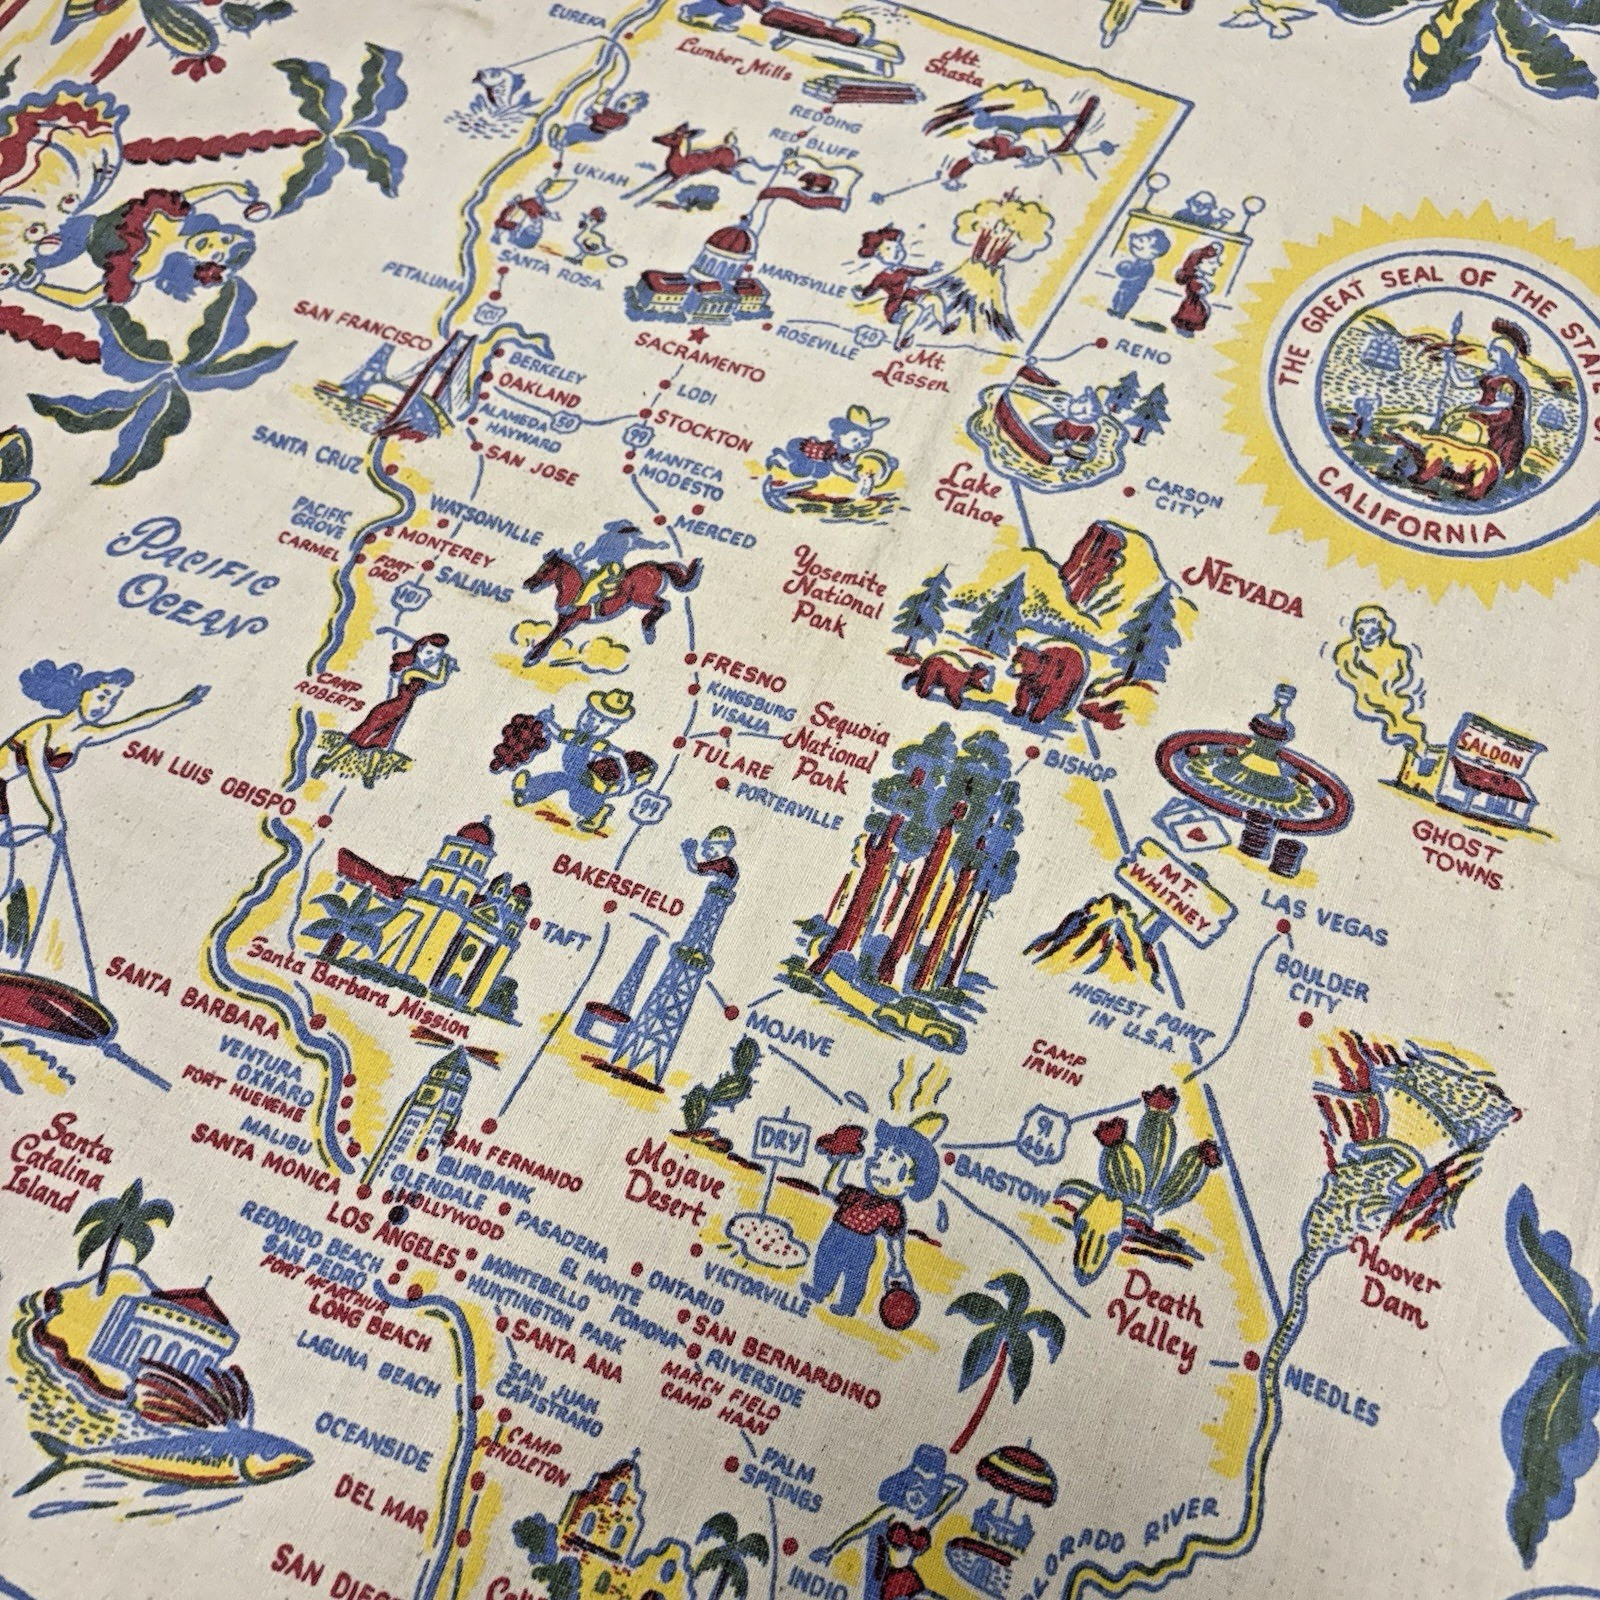 EUREKA
Lumber Mills
Mt.
Shasta
REDDING
RED BLUFF
UKIAH
SANTA ROSA
PETALUMA
101
MARYSVILLE
SAN FRANCISCO
SACRAMENTO
ROSEVILLE
40
Mt.
Lassen
RENO
THE GREAT SEAL OF THE STATE OF
CALIFORNIA
BERKELEY
OAKLAND
ALAMEDA
HAYWARD
50
LODI
STOCKTON
99
MANTECA
MODESTO
SAN JOSE
SANTA CRUZ
Lake
Tahoe
CARSON
CITY
WATSONVILLE
MERCED
PACIFIC
GROVE
CARMEL
MONTEREY
FORT
ORD
SALINAS
101
PACIFIC
OCEAN
Yosemite
National
Park
NEVADA
CAMP
ROBERTS
FRESNO
KINGSBURG
VISALIA
Sequoia
National
Park
TULARE
PORTERVILLE
99
BISHOP
SALOON
GHOST
TOWNS
SAN LUIS OBISPO
BAKERSFIELD
MT.
WHITNEY
HIGHEST POINT
IN U.S.A.
LAS VEGAS
BOULDER
CITY
TAFT
Santa Barbara Mission
SANTA BARBARA
MOJAVE
CAMP
IRWIN
VENTURA
OXNARD
FORT HUENEME
MALIBU
SANTA MONICA
Santa
Catalina
Island
SAN FERNANDO
BURBANK
GLENDALE
HOLLYWOOD
LOS ANGELES
PASADENA
Mojave
Desert
DRY
91
466
BARSTOW
REDONDO BEACH
SAN PEDRO
FORT McARTHUR
LONG BEACH
MONTEBELLO
EL MONTE
HUNTINGTON PARK
POMONA
ONTARIO
VICTORVILLE
Death
Valley
Hoover
Dam
SAN BERNARDINO
RIVERSIDE
MARCH FIELD
CAMP HAAN
SANTA ANA
LAGUNA BEACH
SAN JUAN
CAPISTRANO
NEEDLES
OCEANSIDE
CAMP
PENDLETON
PALM
SPRINGS
DEL MAR
SAN DIEGO
INDIO
ORADO RIVER